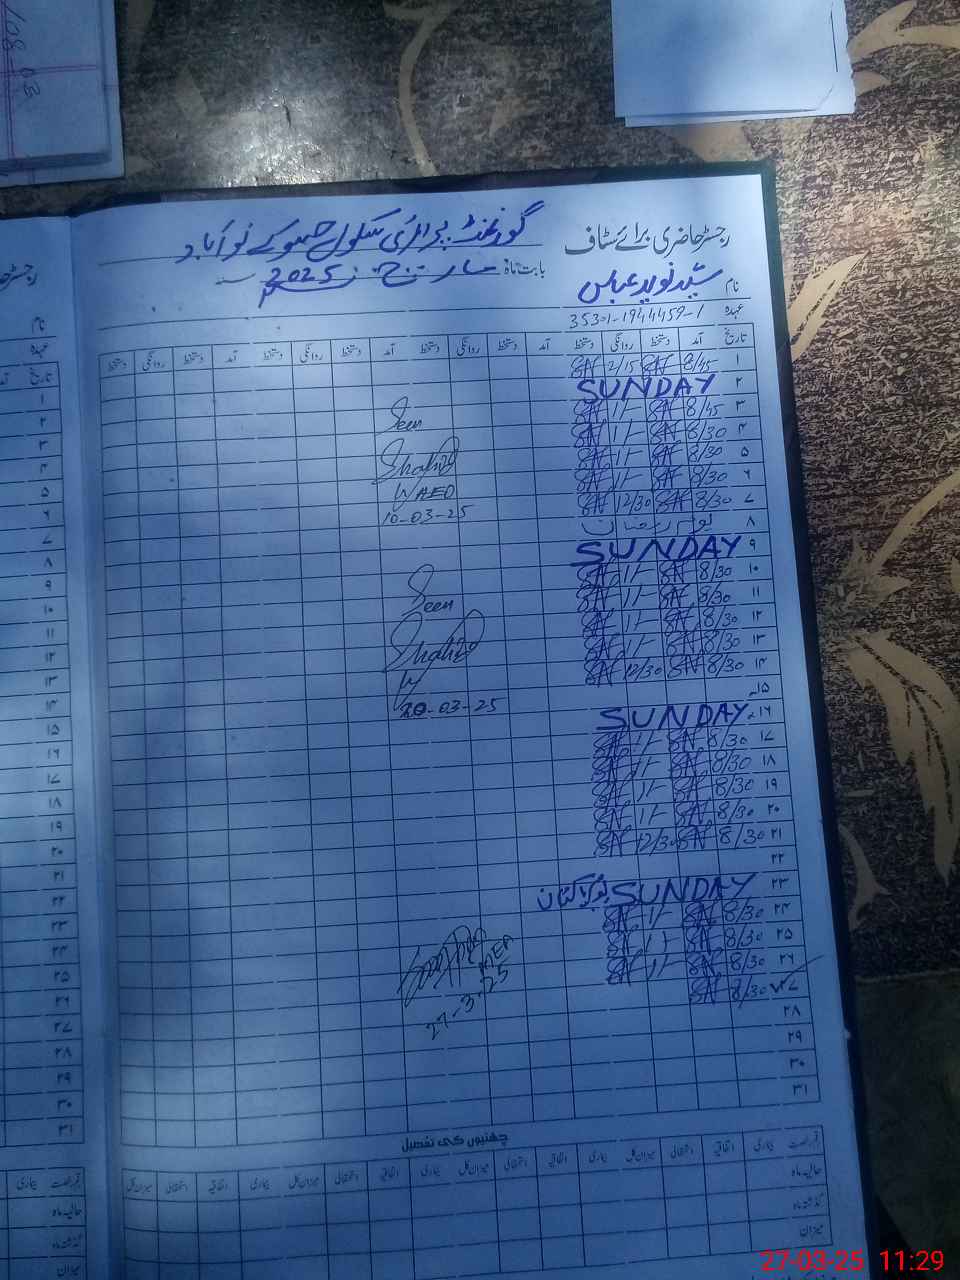 رجسٹر حاضری برائے سٹاف
گورنمنٹ پرائمری سکول جسوکے نوآباد
بابت ماہ مارچ 2025
نام سید نوید عباس
عہدہ 35301-1944459-1
تاریخ آمد دستخط روانگی دستخط آمد دستخط روانگی دستخط آمد دستخط روانگی دستخط آمد دستخط روانگی دستخط
۱ 8/45 SN 2/15 SN
۲ SUNDAY
۳ 8/45 SN 1/- SN
۴ 8/30 SN 1/- SN
۵ 8/30 SN 1/- SN
۶ 8/30 SN 1/- SN
۷ 8/30 SN 12/30 SN
۸
۹ SUNDAY
۱۰ 8/30 SN 1/- SN
۱۱ 8/30 SN 1/- SN
۱۲ 8/30 SN 1/- SN
۱۳ 8/30 SN 1/- SN
۱۴ 8/30 SN 12/30 SN
۱۵
۱۶ SUNDAY
۱۷ 8/30 SN 1/- SN
۱۸ 8/30 SN 1/- SN
۱۹ 8/30 SN 1/- SN
۲۰ 8/30 SN 1/- SN
۲۱ 8/30 SN 12/30 SN
۲۲
۲۳ SUNDAY یوم پاکستان
۲۴ 8/30 SN 1/- SN
۲۵ 8/30 SN 1/- SN
۲۶ 8/30 SN 1/- SN
۲۷ 8/30 SN
۲۸
۲۹
۳۰
۳۱
Seen
Shahid
W AEO
10-03-25
Seen
Shahid
W
20-03-25
MEA
27-3-25
چھٹیوں کی تفصیل
قسم رخصت بیماری اتفاقیہ استحقاقی میزان کل بیماری اتفاقیہ استحقاقی میزان کل بیماری اتفاقیہ استحقاقی میزان کل
حالیہ ماہ
گذشتہ ماہ
میزان
27-03-25 11:29